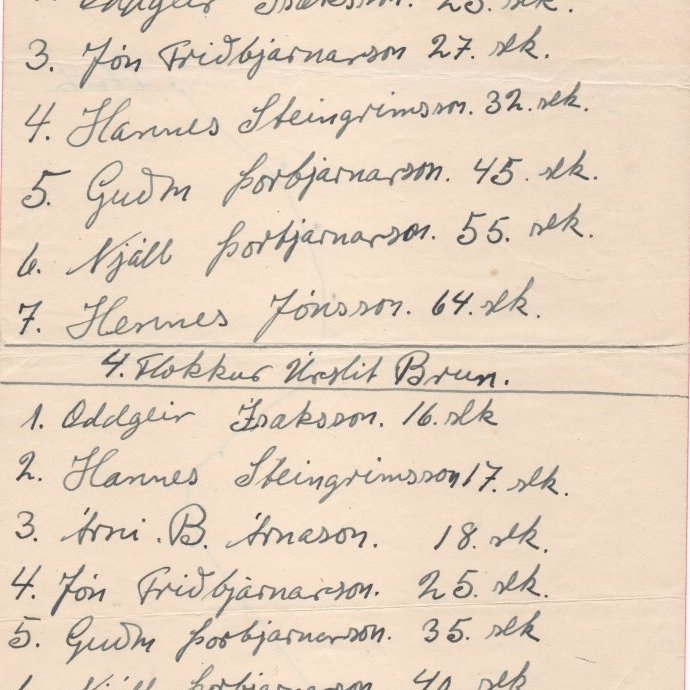 Oddgeir Ísaksson. 25. sek.
3. Jón Friðbjarnarson 27. sek.
4. Hannes Steingrimsson. 32. sek.
5. Guðm Þorbjarnarson. 45. sek.
6. Njáll Þorbjarnarson. 55. sek.
7. Hannes Jónsson. 64. sek.
4. Flokkur Úrslit Brun.
1. Oddgeir Ísaksson. 16. sek
2. Hannes Steingrimsson 17. sek.
3. Árni. B. Árnason. 18. sek.
4. Jón Friðbjarnarson. 25. sek.
5. Guðm Þorbjarnarson. 35. sek
Njáll Þorbjarnarson 40. sek